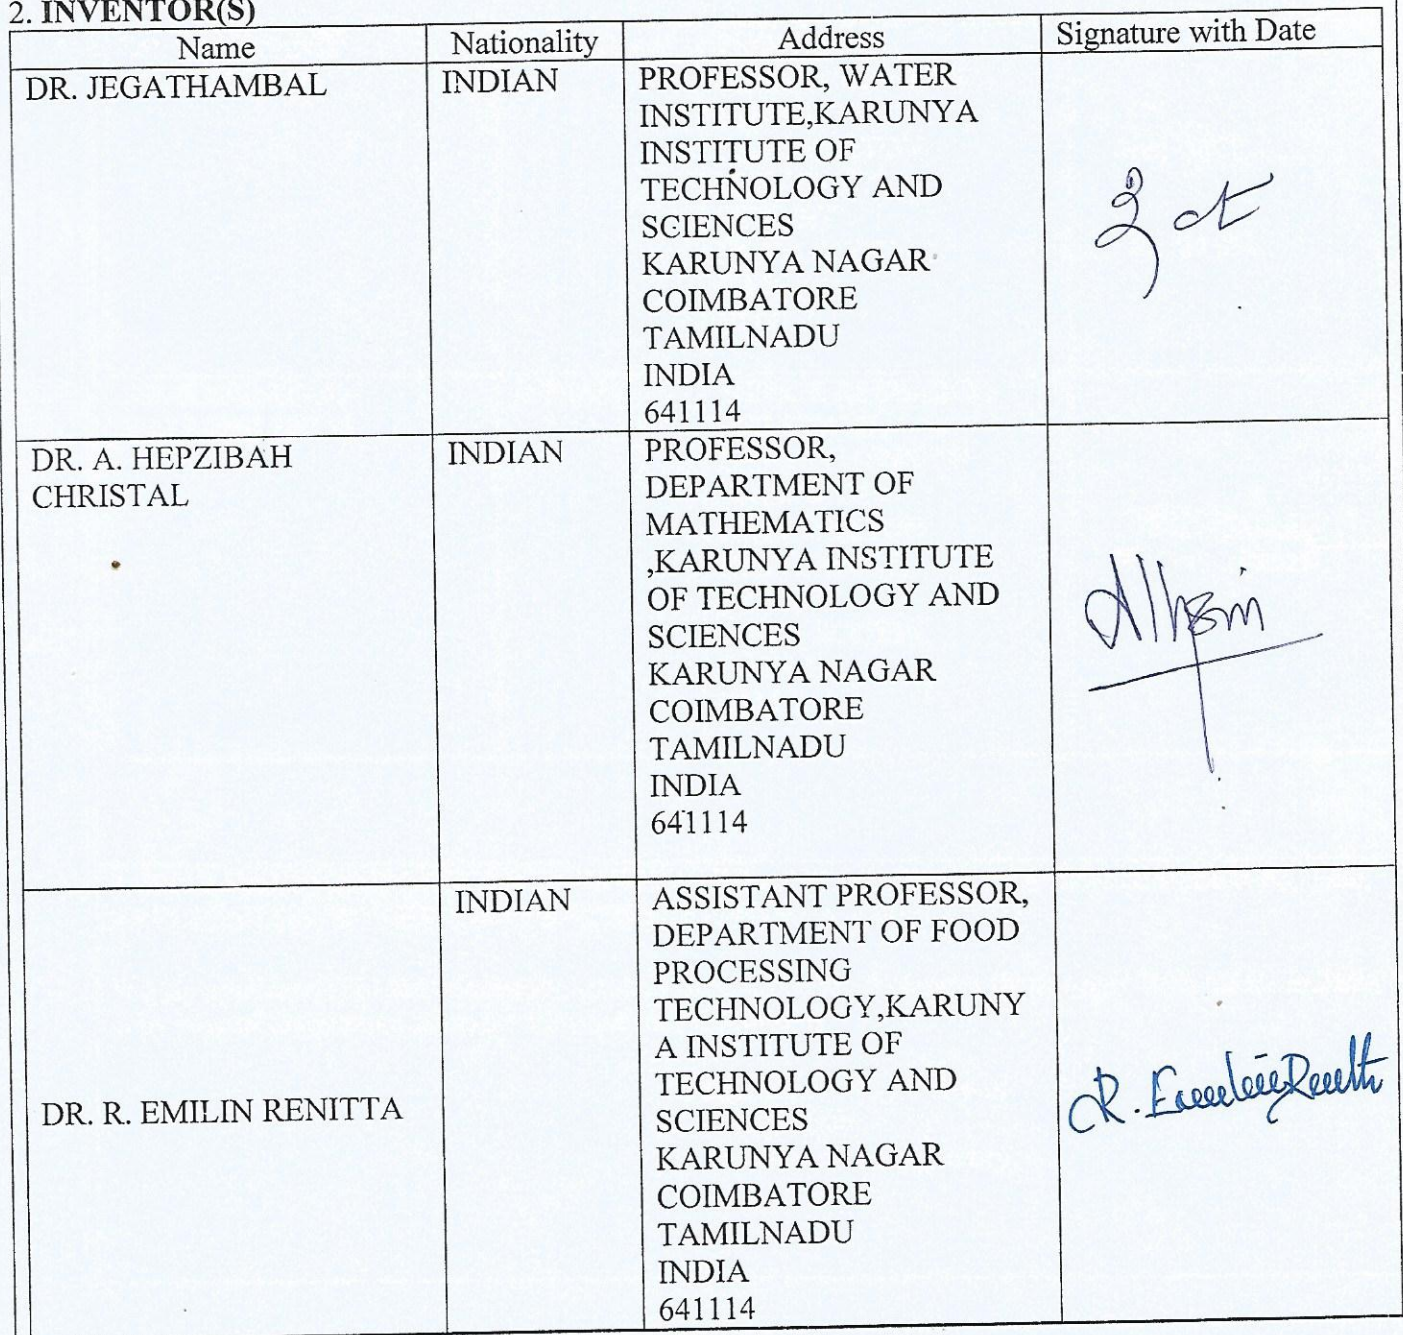 2. INVENTOR(S)
Name Nationality Address Signature with Date
DR. JEGATHAMBAL INDIAN PROFESSOR, WATER
INSTITUTE,KARUNYA
INSTITUTE OF
TECHNOLOGY AND
SCIENCES
KARUNYA NAGAR
COIMBATORE
TAMILNADU
INDIA
641114
DR. A. HEPZIBAH INDIAN PROFESSOR,
CHRISTAL DEPARTMENT OF
MATHEMATICS
,KARUNYA INSTITUTE
OF TECHNOLOGY AND
SCIENCES
KARUNYA NAGAR
COIMBATORE
TAMILNADU
INDIA
641114
INDIAN ASSISTANT PROFESSOR,
DEPARTMENT OF FOOD
PROCESSING
TECHNOLOGY,KARUNY
A INSTITUTE OF
TECHNOLOGY AND
DR. R. EMILIN RENITTA SCIENCES
KARUNYA NAGAR
COIMBATORE
TAMILNADU
INDIA
641114